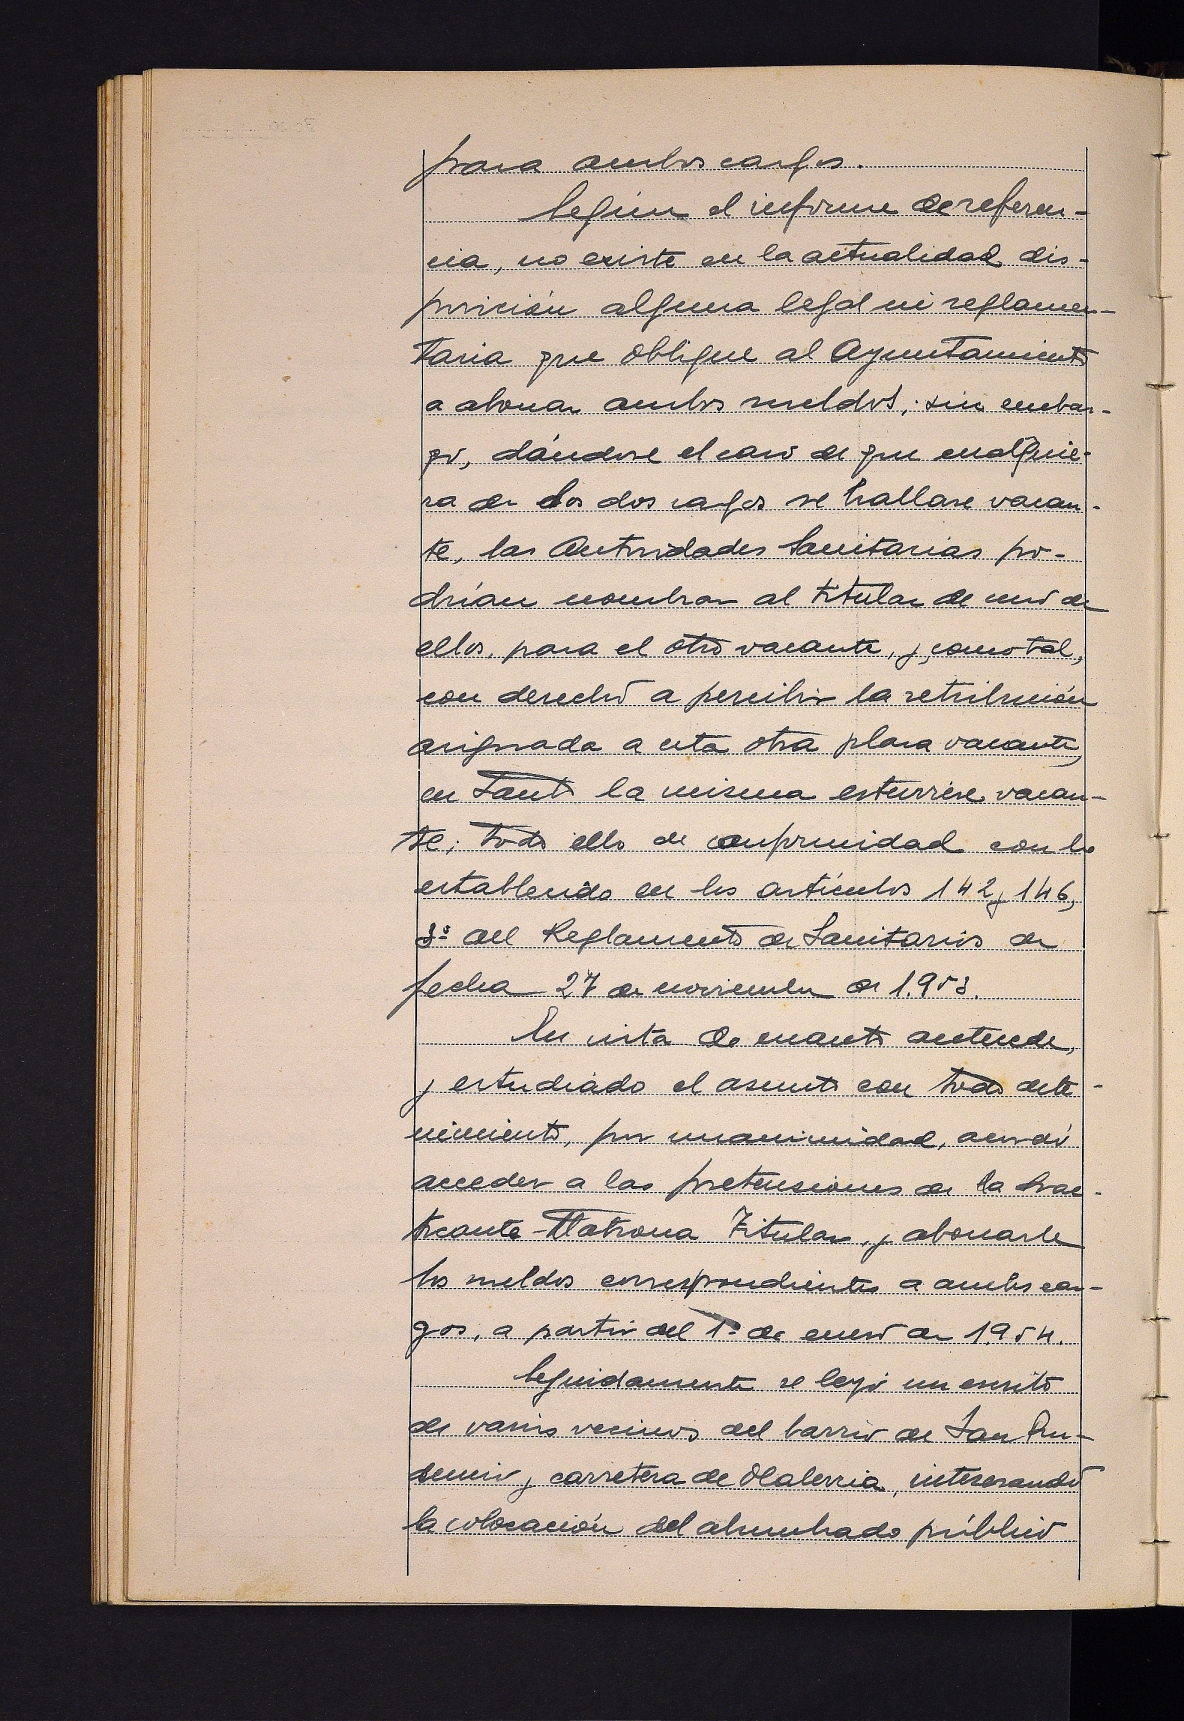 para ambos cargos.
Según el informe de referen-
cia, no existe en la actualidad dis-
posición alguna legal ni reglamen-
taria que obligue al Ayuntamiento
a abonar ambos sueldos; sin embar-
go, dándose el caso de que cualquie-
ra de los dos cargos se hallare vacan-
te, las Autoridades Sanitarias po-
drían nombrar al titular de uno de
ellos, para el otro vacante, y, como tal,
con derecho a percibir la retribución
asignada a esta otra plaza vacante,
en tanto la misma estuviere vacan-
te; todo ello de conformidad con lo
establecido en los artículos 142 y 146,
3º del Reglamento de Sanitarios de
fecha 27 de noviembre de 1.953.
En vista de cuanto antecede,
y estudiado el asunto con todo dete-
nimiento, por unanimidad, acordó
acceder a las pretensiones de la Prac-
ticante Matrona Titular, y abonarle
los sueldos correspondientes a ambos car-
gos, a partir del 1º de enero de 1954.
Seguidamente se leyó un escrito
de varios vecinos del barrio de San Pru-
dencio y carretera de Olaberria, interesando
la colocación del alumbrado público